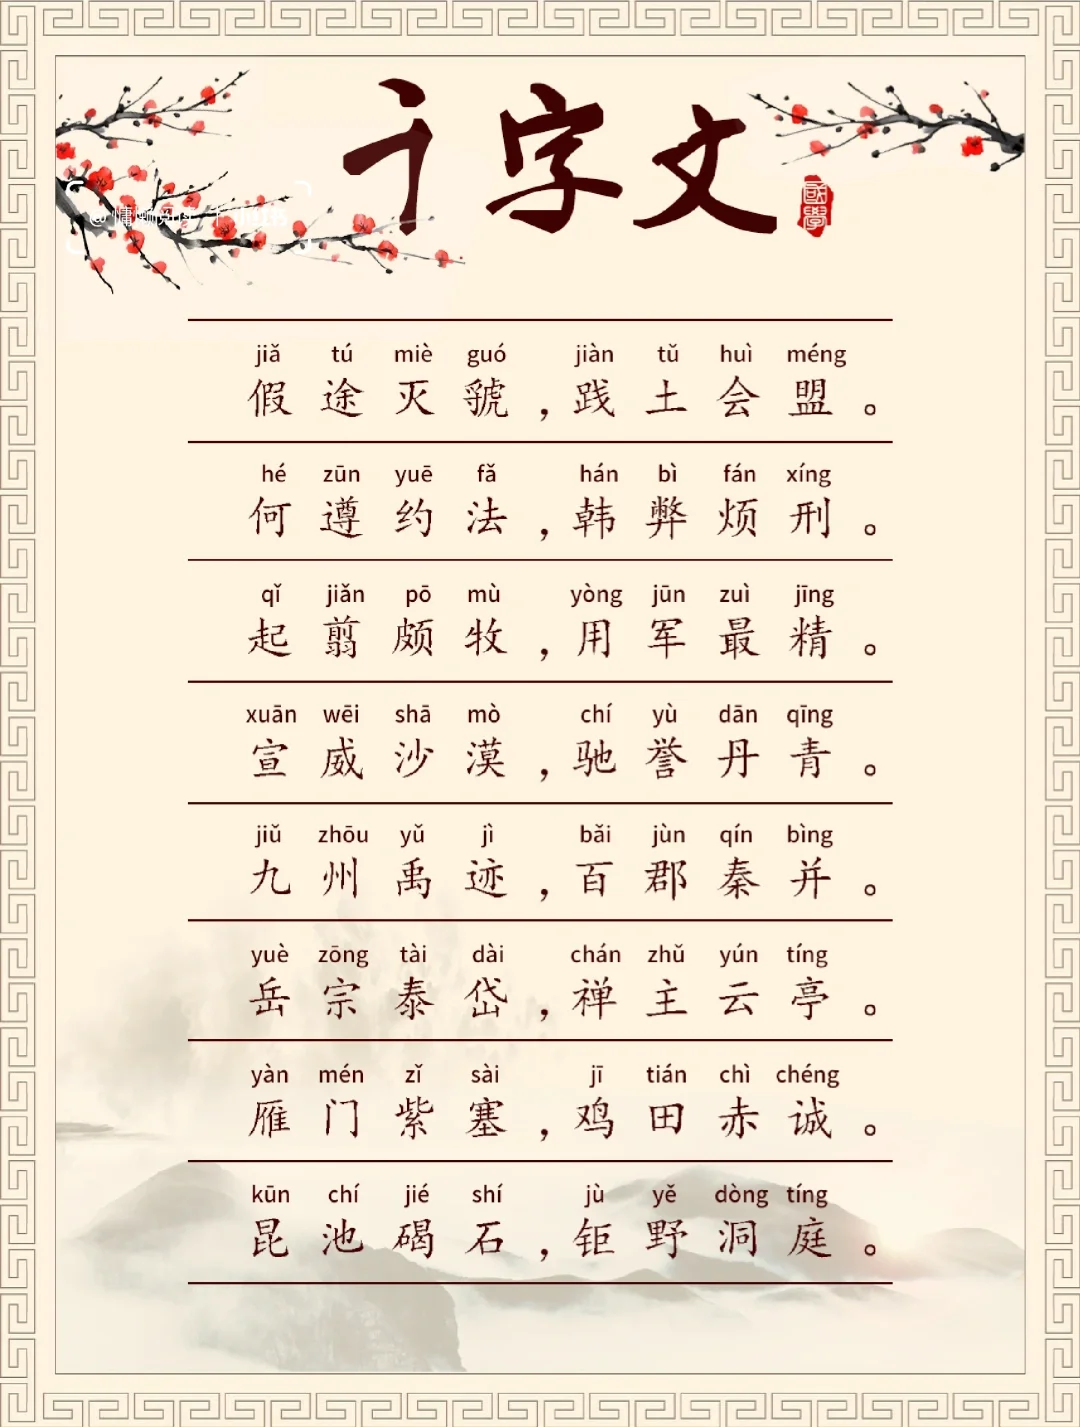 千字文
國學
jiǎ tú miè guó jiàn tǔ huì méng
假途灭虢，践土会盟。
hé zūn yuē fǎ hán bì fán xíng
何遵约法，韩弊烦刑。
qǐ jiǎn pō mù yòng jūn zuì jīng
起翦颇牧，用军最精。
xuān wēi shā mò chí yù dān qīng
宣威沙漠，驰誉丹青。
jiǔ zhōu yǔ jì bǎi jùn qín bìng
九州禹迹，百郡秦并。
yuè zōng tài dài chán zhǔ yún tíng
岳宗泰岱，禅主云亭。
yàn mén zǐ sài jī tián chì chéng
雁门紫塞，鸡田赤诚。
kūn chí jié shí jù yě dòng tíng
昆池碣石，钜野洞庭。